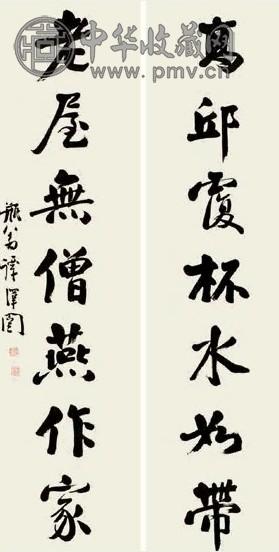 中华收藏网
www.pmv.cn
高邱覆杯水如帶
老屋無僧燕作家
瓶翁譚澤闓